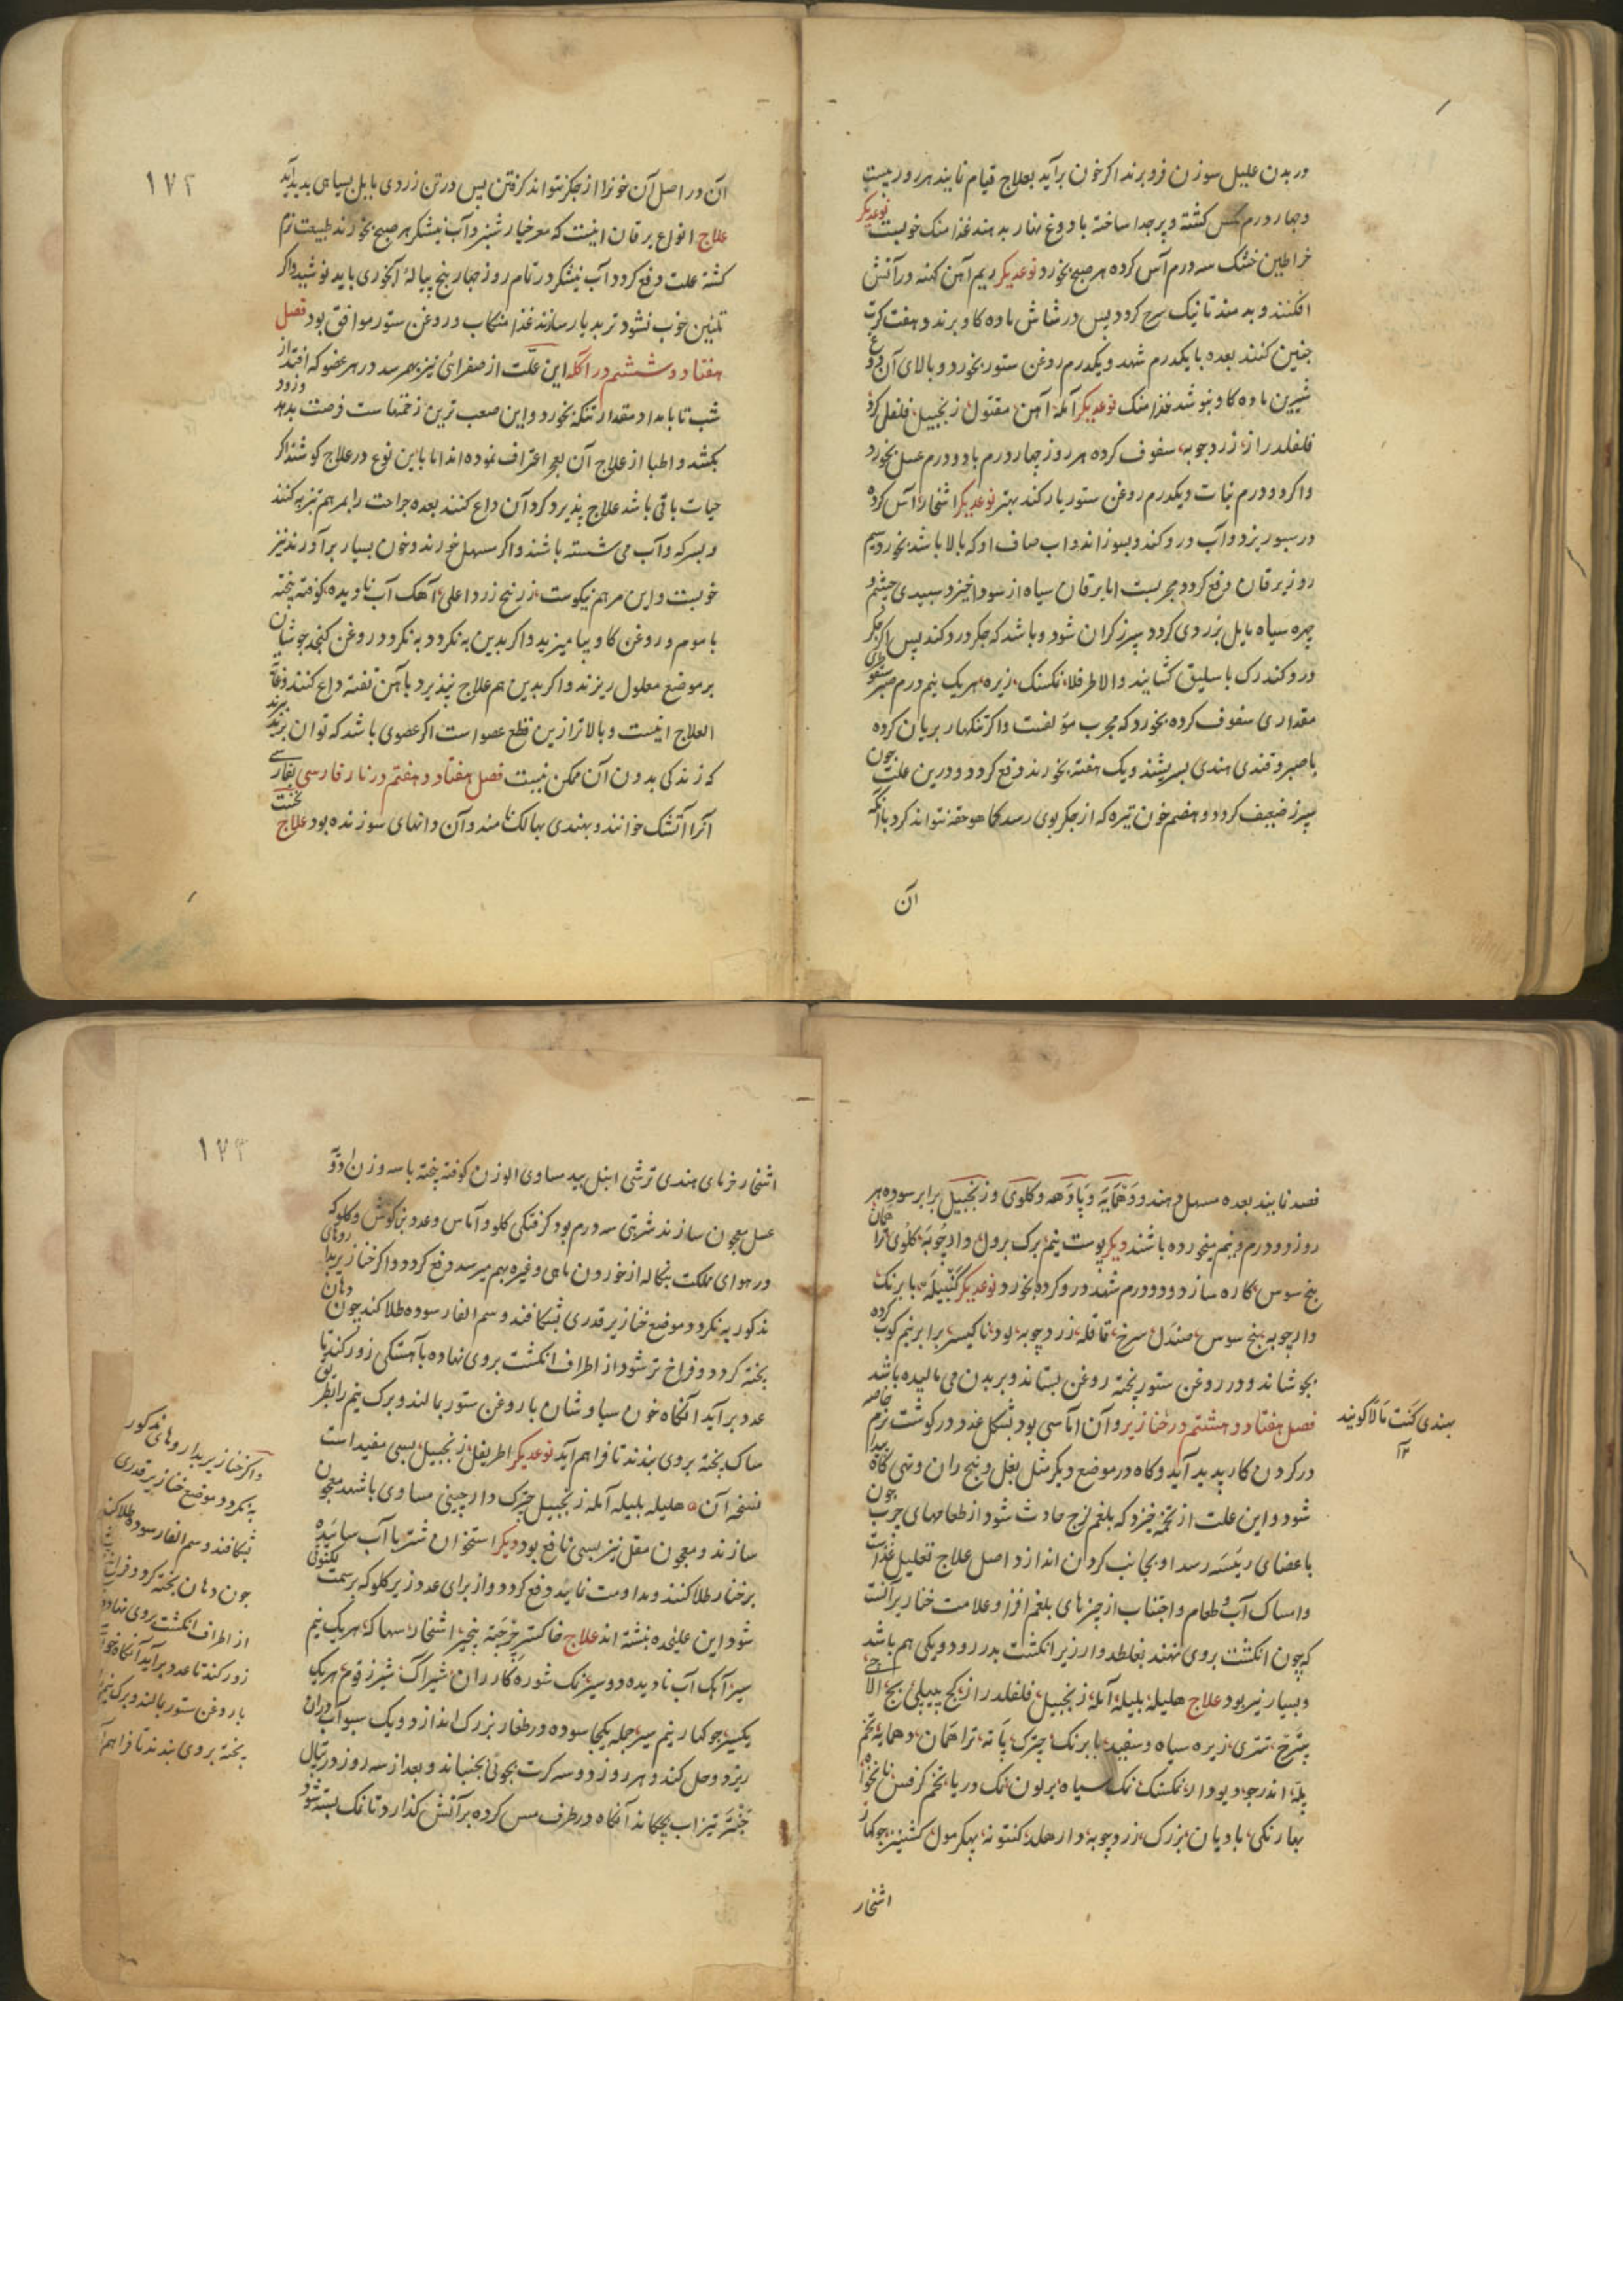 در بدن علیل سوزن فرو برند اکر خون برآید بعلاج قیام نمایند هر روز بیست
وچهار درم مکس کشته و پر جدا ساخته با دوغ نهار بدهند غذا منک خوبست نوعدیکر
خراطین خشک سه درم آس کرده هر صبح بخورد نوعدیکر ریم آهن کهنه در آتش
افکنند و بدمند تا نیک سرخ کردد پس در شاش ماده کاو برند و هفت کرت
چنین کنند بعده با یکدرم شهد و یکدرم روغن ستور بخورد و بالای آن دوغ
شیرین ماده کاو بنوشد غذا منک نوعدیکر آمله آهن مقتول زنجبیل فلفل کرد
فلفلدراز زردچوبه سفوف کرده هر روز چهار درم با دو درم عسل بخورد
واکر دو درم نبات و یکدرم روغن ستور یار کند بهتر نوعدیکر اشخار آس کرده
در سبو ریزد و آب درو کند و بسوزاند و اب صاف او که بالا باشد بخورد سیم
روز یرقان دفع کردد مجربست اما یرقان سیاه از سودا خیزد و سبیدی چشم و
چهره سیاه مایل بزردی کردد سپرز کران شود و باشد که جکر درد کند پس اکر جکر
درد کند رک باسلیق کشایند والا طرفلا نمکسنک زیره هر یک نیم درم صبر سقوطری
مقداری سفوف کرده بخورد که مجرب مؤلفست واکر تنکهار بریان کرده
با صبر و قندی هندی بسریشند و یک هفته بخورند دفع کردد و درین علت چون
سپرز ضعیف کردد و هضم خون تیره که از جکر بوی رسد کما هو حقه نتواند کرد با آنکه
آن
۱۷۲
آن در اصل آن خونرا از جکر نتواند کرفتن پس در تن زردی مایل بسیاهی پدید آید
علاج انواع یرقان اینست که مغز خیار شنبر و آب نیشکر هر صبح بخورند طبیعت نرم
کشته علت دفع کردد آب نیشکر در تمام روز چهار پنج پیالۀ آبخوری باید نوشید واکر
تلیین خوب نشود تربد یار سازند غذا منکاب و روغن ستور موافق بود فصل
هفتاد و ششم در آکله این علّت از صفرائی نیز بهم رسد در هر عضو که افتد از
شب تا بامداد مقدار تنکه بخورد و این صعب ترین زخمهاست فرصت بدهد وزود
بکشد و اطبا از علاج آن بعجز اعتراف نموده اند اما باین نوع در علاج کوشند اکر
حیات باقی باشد علاج پذیرد کرد آن داغ کنند بعده جراحت را بمرهم تربیه کنند
و بسرکه و آب می شسته باشند واکر مسهل خورند و خون بسیار برآورند نیز
خوبست و این مرهم نیکوست زرنیخ زرد اعلی آهک آب نادیده کوفته پخته
با موم و روغن کاو بیامیزید واکر بدین به نکردد به نکرد و روغن کنجد جوشان
بر موضع معلول ریزند واکر بدین هم علاج نپذیرد بآهن تفته داغ کنند و غایة
العلاج اینست و بالاتر ازین قطع عضو است اکر عضوی باشد که توان برید
که زندکی بدون آن ممکن نیست فصل هفتاد و هفتم در نار فارسی بفارسی
آنرا آتشک خوانند و بهندی بهالک نامند و آن دانهای سوزنده بود علاج نخست
فصد نمایند بعده مسهل دهند و دَهْمَایَه و پادَهه و کلوی و زنجبیل برابر سوده هر
روز دو درم و نیم میخورده باشند دیکر پوست نیم برک برول دارچوبه کلوی ترا همان
بیخ سوس کاره سازد و دو درم شهد درو کرده بخورد نوعدیکر کنبیله با برنک
دارچوبه بیخ سوس صندل سرخ قاقله زردچوبه لود ناکیسر برابر نیم کوب کرده
بجوشاند و در روغن ستور پخته روغن بستاند و بر بدن می مالیده باشد
فصل هفتاد و هشتم در خنازیر و آن آماسی بود بشکل غدد در کوشت نرم خاصه
در کردن کار پدید آید و کاه در موضع دیکر مثل بغل و بیخ ران و تهی کاه پیدا
شود و این علت از تخمه خیزد که بلغم لزج حادث شود از طعامهای چرب چون
باعضای رئیسه رسد او بجانب کردن اندازد اصل علاج تقلیل غذاست
و امساک آب و طعام و اجتناب از چیزهای بلغم افزا و علامت خنازیر آنست
که چون انکشت بروی نهند بغلطد و از زیر انکشت بدر رود و یکی هم باشد
و بسیار نیز بود علاج هلیله بلیله آمله زنجبیل فلفلدراز کج پیپلی بچ الاچی
پترج تتری زیره سیاه و سفید بابرنک چترک پاته تراهمان دهمایه تخم
پله اندرجو دیودار نمکسنک نمک سیاه برلون نمک دریا تخم کرفس نانخواه
بهارنکی بادیان بزرک زردچوبه دارهلد کنتونه پهکرمول کشنیز جوکهار
اشخار
بهندی کنت مالا کویند
۱۲
۱۷۳
اشخار خرمای هندی ترشی انبل بید مساوی الوزن کوفته پخته با سه وزن ادویه
عسل معجون سازند شربتی سه درم بود کرفتکی کلو و آماس و غدد بناکوش و کلو که
در هوای مملکت بنکاله از خوردن ماهی و غیره بهم میرسد دفع کردد واکر خنازیر بدارو های
مذکور به نکردد موضع خنازیر قدری بشکافند و سم الفار سوده طلا کند چون دهان
پخته کردد و فراخ تر شود از اطراف انکشت بروی نهاده بآهستکی زور کند تا
غدد برآید آنکاه خون سیاوشان با روغن ستور بمالند و برک نیم را بطریق
ساک پخته بروی بندند تا فراهم آید نوعدیکر اطریفل زنجبیل بسی مفید است
نسخه آن هلیله بلیله آمله زنجبیل چترک دارچینی مساوی باشهد معجون
سازند و معجون مقل نیز بسی نافع بود دیکر استخوان شتر با آب سائیده
بر خنازیر طلا کنند و مداومت نمایند دفع کردد و از برای غدد زیر کلو که برسمت
شود این علیحده بنشته اند علاج خاکستر چرچته بنجیر اشخار سهاکه هر یک نیم
سیر آهک آب نادیده دو سیر نمک شوره کازران شیر آک شیر زقوم هر یک
یکسیر جوکهار نیم سیر جمله یکجا سوده در طغار بزرک اندازد و یک سبو آب دران
ریزد و حل کند و هر روز دو سه کرت بچوبی بجنباند و بعد از سه روز در پتال
جنتر تیزاب بچکاند آنکاه در ظرف مس کرده بر آتش کذارد تا نمک بسته شود
واکر خنازیر بدارو های مذکور
به نکردد موضع خنازیر قدری
بشکافند و سم الفار سوده طلا کند
چون دهان پخته کردد و فراخ تر
از اطراف انکشت بروی نهاده
زور کند تا غدد برآید آنکاه خون
با روغن ستور بمالند و برک نیم
پخته بروی بندند تا فراهم آید